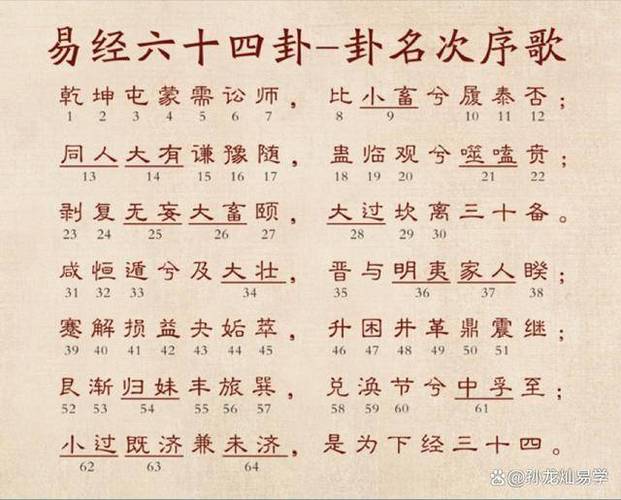 易经六十四卦-卦名次序歌
乾坤屯蒙需讼师，比小畜兮履泰否；
1 2 3 4 5 6 7 8 9 10 11 12
同人大有谦豫随，蛊临观兮噬嗑贲；
13 14 15 16 17 18 19 20 21 22
剥复无妄大畜颐，大过坎离三十备。
23 24 25 26 27 28 29 30
咸恒遁兮及大壮，晋与明夷家人睽；
31 32 33 34 35 36 37 38
蹇解损益夬姤萃，升困井革鼎震继；
39 40 41 42 43 44 45 46 47 48 49 50 51
艮渐归妹丰旅巽，兑涣节兮中孚至；
52 53 54 55 56 57 58 59 60 61
小过既济兼未济，是为下经三十四。
62 63 64
孙龙灿易学